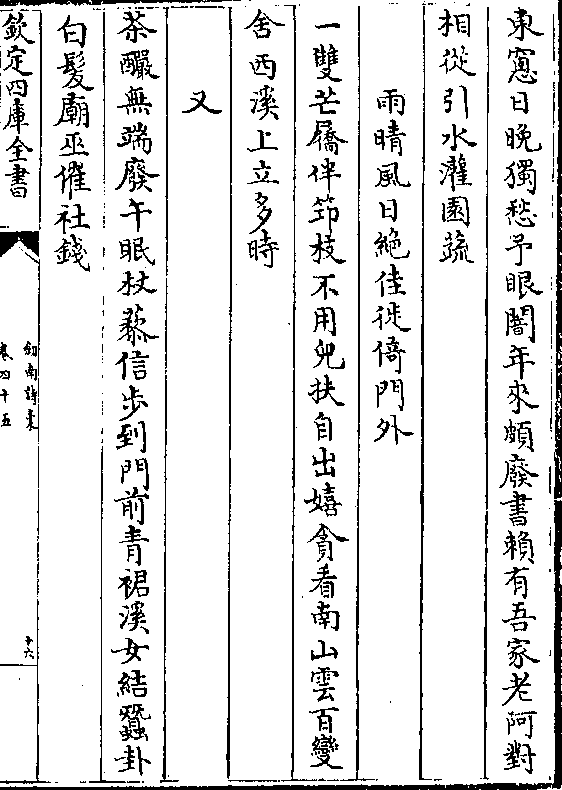 東窻日晚獨愁予眼闇年來頗廢書賴有吾家老阿對
相從引水灌園蔬
雨晴風日絶佳徙倚門外
一雙芒屩伴笻枝不用兒扶自出嬉貪看南山雲百變
舍西溪上立多時
又
荼釅無端廢午眠杖藜信步到門前青裙溪女結蠶卦
白髪廟巫催社錢
欽定四庫全書
劍南詩藁
卷四十五
十六